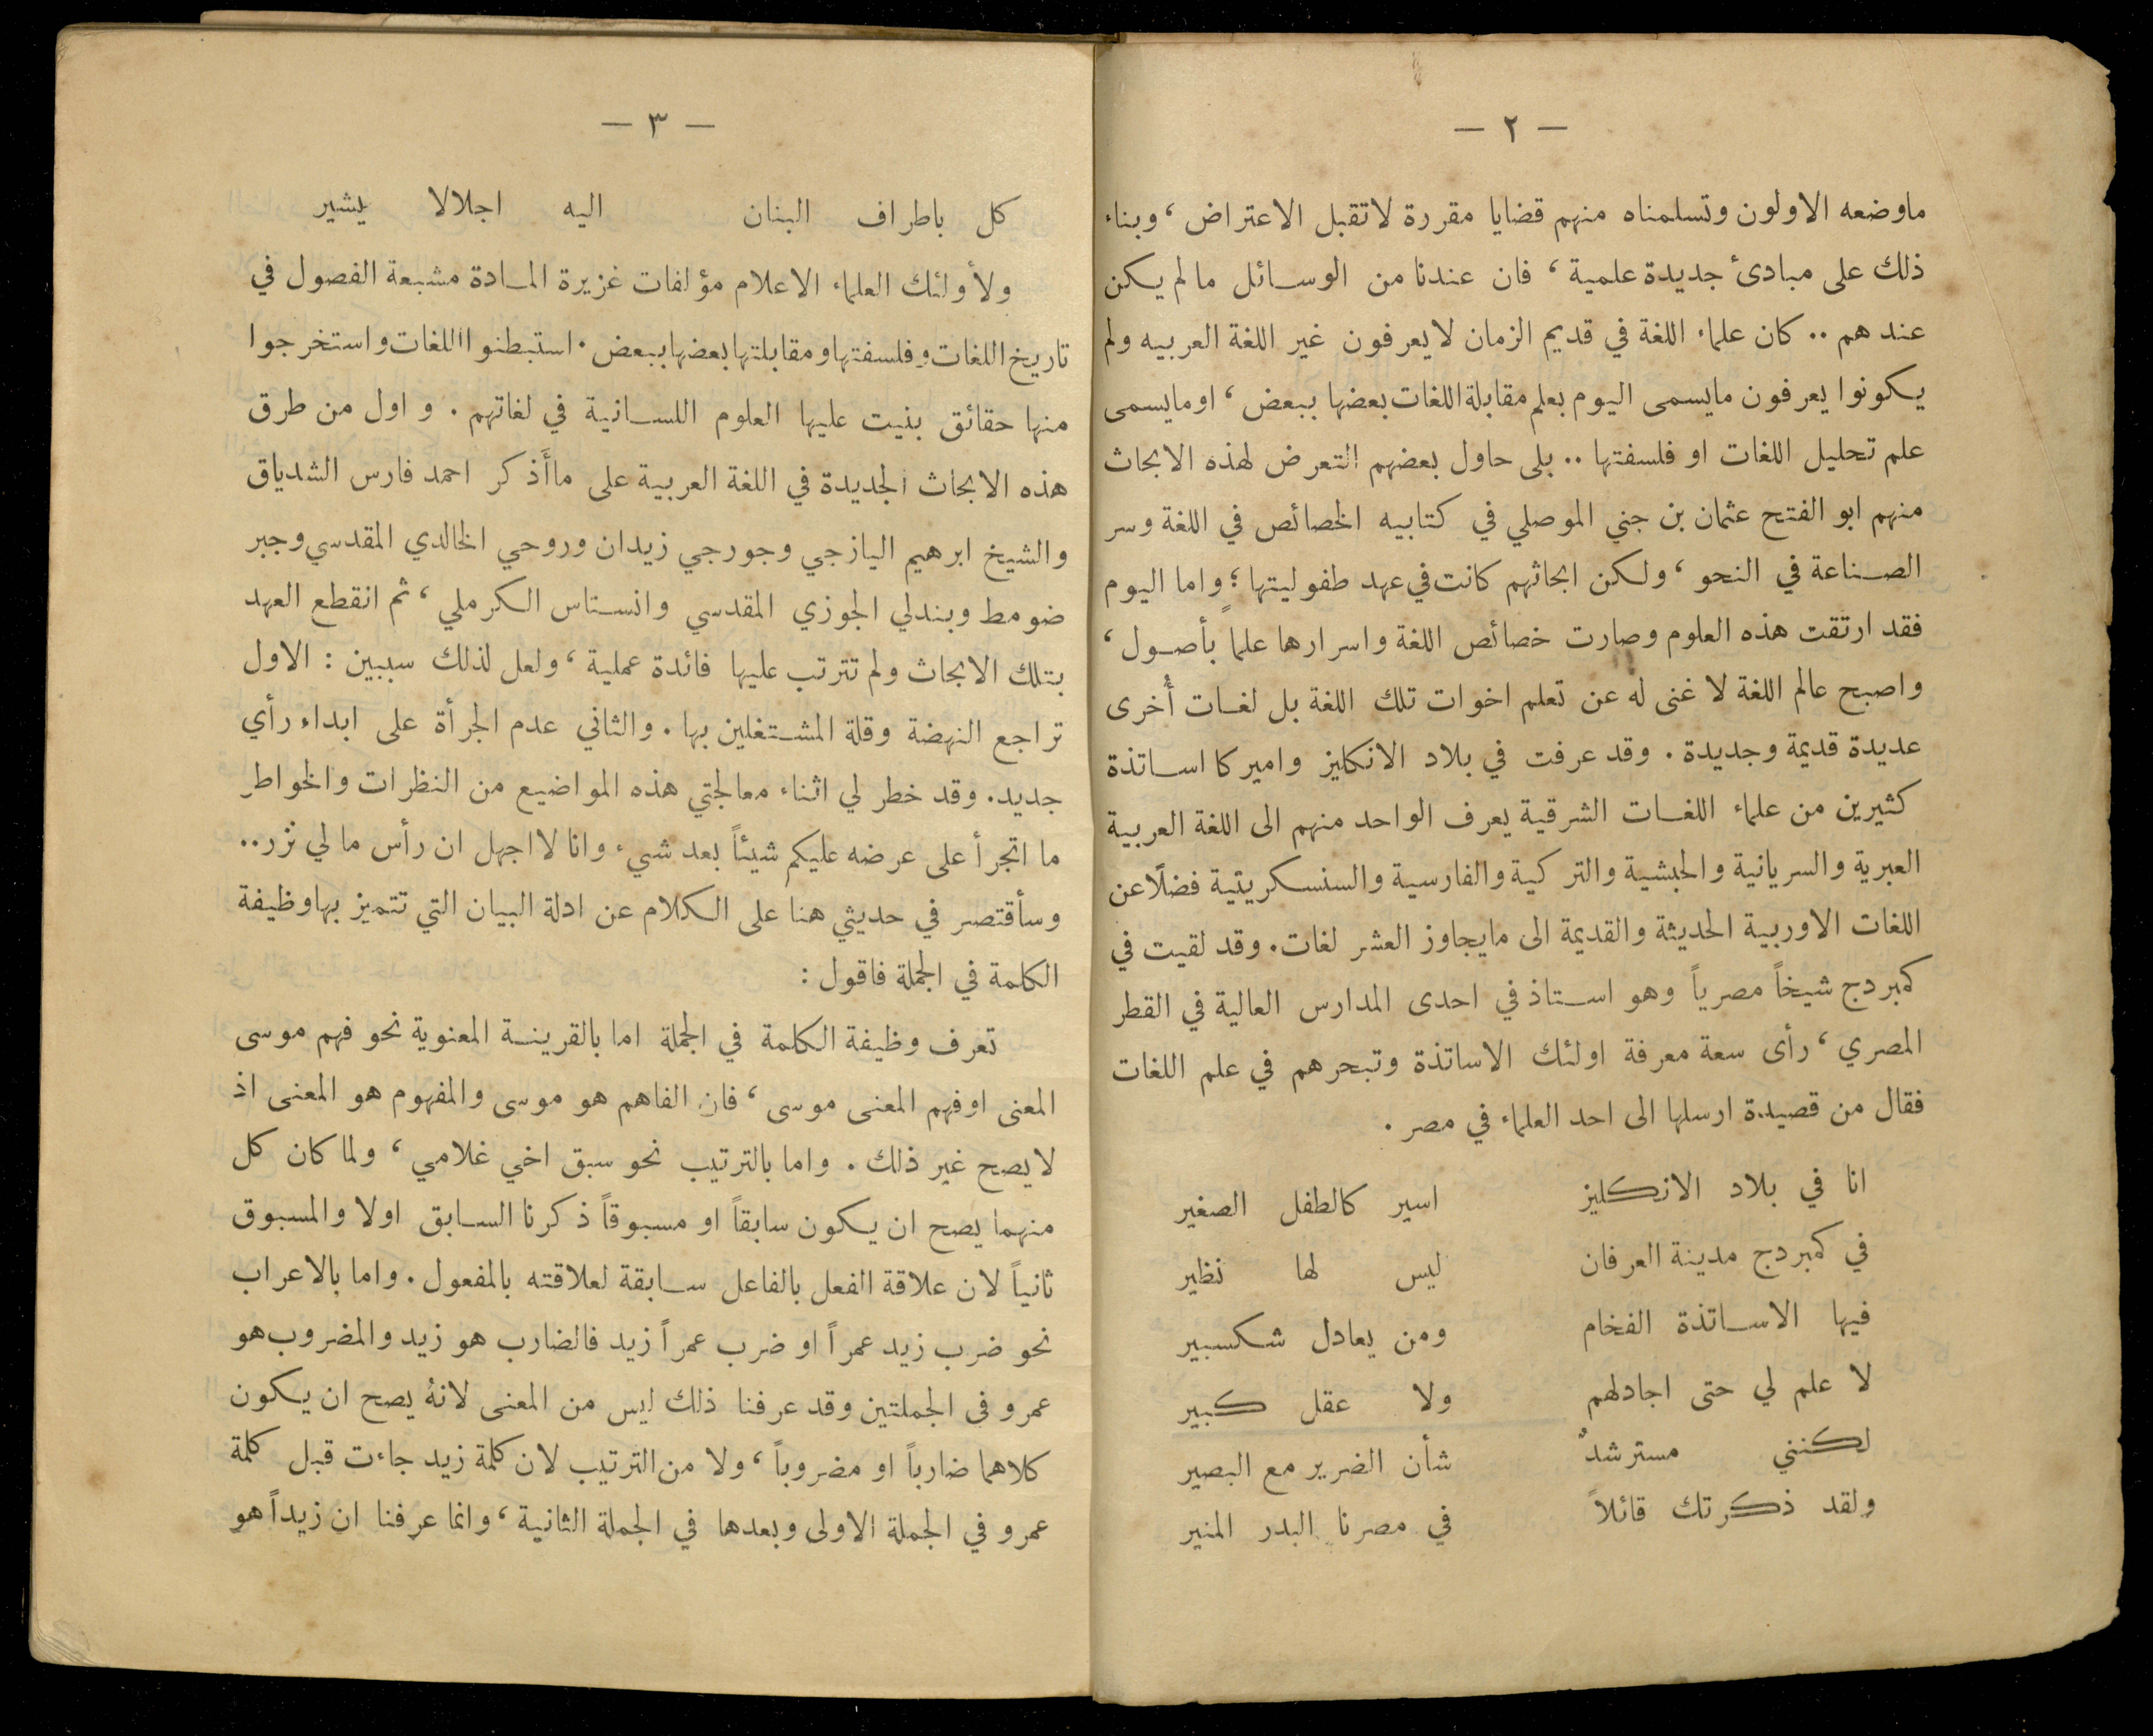 — ٢ —
ماوضعه الاولون وتسلمناه منهم قضايا مقررة لاتقبل الاعتراض ، وبناء
ذلك على مبادئ جديدة علمية ، فان عندنا من الوسائل ما لم يكن
عندهم .. كان علماء اللغة في قديم الزمان لايعرفون غير اللغة العربيه ولم
يكونوا يعرفون مايسمى اليوم بعلم مقابلة اللغات بعضها ببعض ، او مايسمى
علم تحليل اللغات او فلسفتها .. بلى حاول بعضهم التعرض لهذه الابحاث
منهم ابو الفتح عثمان بن جني الموصلي في كتابيه الخصائص في اللغة وسر
الصناعة في النحو ، ولكن ابحاثهم كانت في عهد طفوليتها ؛ واما اليوم
فقد ارتقت هذه العلوم وصارت خصائص اللغة واسرارها علماً بأصول ،
واصبح عالم اللغة لا غنى له عن تعلم اخوات تلك اللغة بل لغات أُخرى
عديدة قديمة وجديدة . وقد عرفت في بلاد الانكليز واميركا اساتذة
كثيرين من علماء اللغات الشرقية يعرف الواحد منهم الى اللغة العربية
العبرية والسريانية والحبشية والتركية والفارسية والسنسكريتية فضلًا عن
اللغات الاوربية الحديثة والقديمة الى مايجاوز العشر لغات . وقد لقيت في
كمبردج شيخاً مصرياً وهو استاذ في احدى المدارس العالية في القطر
المصري ، رأى سعة معرفة اولئك الاساتذة وتبحرهم في علم اللغات
فقال من قصيدة ارسلها الى احد العلماء في مصر .
انا في بلاد الانكليز اسير كالطفل الصغير
في كمبردج مدينة العرفان ليس لها نظير
فيها الاساتذة الفخام ومن يعادل شكسبير
لا علم لي حتى اجادلهم ولا عقل كبير
لكنني مسترشدٌ شأن الضرير مع البصير
ولقد ذكرتك قائلاً في مصرنا البدر المنير
— ٣ —
كل باطراف البنان اليه اجلالا يشير
ولأولئك العلماء الاعلام مؤلفات غزيرة المادة مشبعة الفصول في
تاريخ اللغات وفلسفتها ومقابلتها بعضها ببعض . استبطنوا اللغات واستخرجوا
منها حقائق بنيت عليها العلوم اللسانية في لغاتهم . واول من طرق
هذه الابحاث الجديدة في اللغة العربية على ماأَذكر احمد فارس الشدياق
والشيخ ابرهيم اليازجي وجورجي زيدان وروحي الخالدي المقدسي وجبر
ضومط وبندلي الجوزي المقدسي وانستاس الكرملي ، ثم انقطع العهد
بتلك الابحاث ولم تترتب عليها فائدة عملية ، ولعل لذلك سببين : الاول
تراجع النهضة وقلة المشتغلين بها . والثاني عدم الجرأة على ابداء رأي
جديد. وقد خطر لي اثناء معالجتي هذه المواضيع من النظرات والخواطر
ما اتجرأ على عرضه عليكم شيئاً بعد شيء وانا لا اجهل ان رأس ما لي نزر..
وسأقتصر في حديثي هنا على الكلام عن ادلة البيان التي تتميز بها وظيفة
الكلمة في الجملة فاقول :
تعرف وظيفة الكلمة في الجملة اما بالقرينة المعنوية نحو فهم موسى
المعنى اوفهم المعنى موسى ، فان الفاهم هو موسى والمفهوم هو المعنى اذ
لا يصح غير ذلك . واما بالترتيب نحو سبق اخي غلامي ، ولما كان كل
منهما يصح ان يكون سابقاً او مسبوقاً ذكرنا السابق اولا والمسبوق
ثانياً لان علاقة الفعل بالفاعل سابقة لعلاقته بالمفعول . واما بالاعراب
نحو ضرب زيد عمراً او ضرب عمراً زيد فالضارب هو زيد والمضروب هو
عمرو في الجملتين وقد عرفنا ذلك ليس من المعنى لانهُ يصح ان يكون
كلاهما ضارباً او مضروباً ، ولا من الترتيب لان كلمة زيد جاءت قبل كلمة
عمرو في الجملة الاولى وبعدها في الجملة الثانية ، وانما عرفنا ان زيداً هو